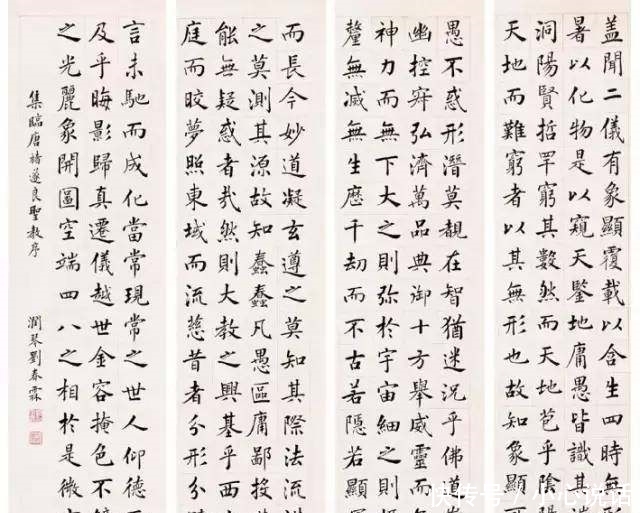 盖聞二儀有象顯覆載以含生四時無
暑以化物是以窺天鑒地庸愚皆識其
洞陽賢哲罕窮其數然而天地苞乎陰
天地而難窮者以其無形也故知象顯
愚不惑形潛莫覩在智猶迷況乎佛道
幽控寂弘濟萬品典御十方舉威靈而
神力而無下大之則弥於宇宙細之則
釐無滅無生歷千劫而不古若隱若顯
而長今妙道凝玄遵之莫知其際法流
之莫測其源故知蠢蠢凡愚區庸鄙投
能無疑惑者哉然則大教之興基乎西
庭而皎夢照東域而流慈昔者分形分
言未馳而成化當常現常之世人仰德
及乎晦影歸真遷儀越世金容掩色不
之光麗象開圖空端四八之相於是微
集臨唐褚遂良聖教序 潤琴劉春霖
快传号 / 小心说话